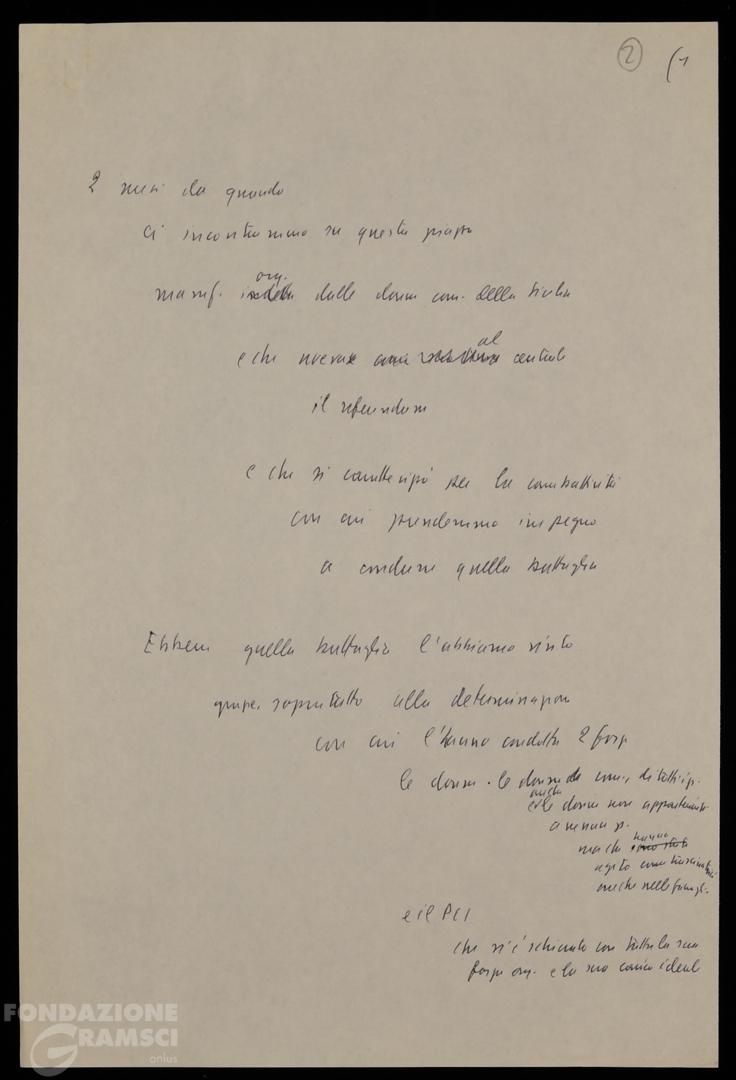 2 (1
2 mesi da quando
ci incontrammo su questa piazza
org.
manif. dalle donne com. della Sicilia
al
e che aveva centro
il referendum
e che si caratterizzò per la combattività
con cui prendemmo impegno
a condurre quella battaglia
Ebbene quella battaglia l'abbiamo vinta
soprattutto alla determinazione
con cui l'hanno condotta 2 forze
le donne - le donne com., di tutti i p.
anche
le donne non appartenenti
a nessun p.
hanno
ma che
agito
anche nelle famigl.
e il PCI
che si è schierato con tutta la sua
forza org. e la sua carica ideale
FONDAZIONE
GRAMSCI
onlus